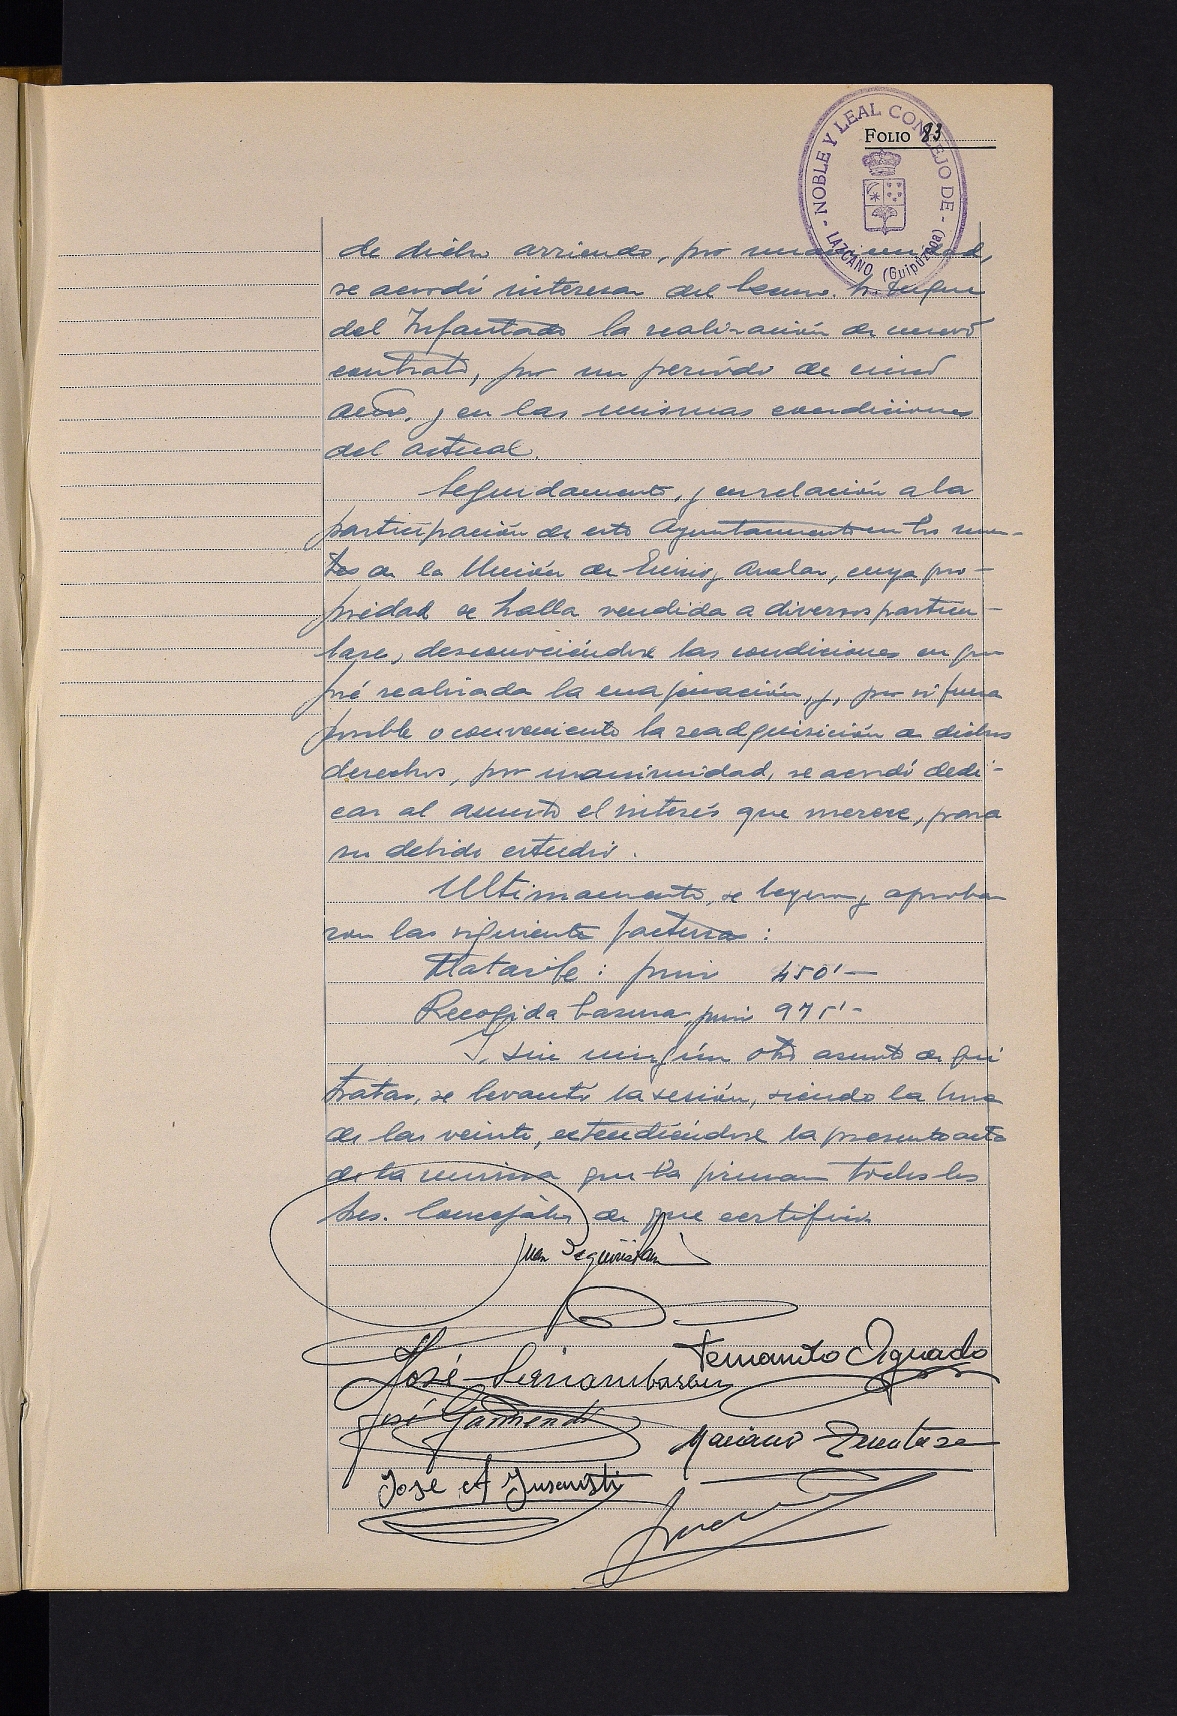 FOLIO 83
NOBLE Y LEAL CONCEJO DE LAZCANO (Guipúzcoa)
de dicho arriendo, por unanimidad,
se acordó interesar del Excmo. Sr. Duque
del Infantado la realización de nuevo
contrato, por un período de cinco
años, y en las mismas condiciones
del actual.
Seguidamente, y en relación a la
participación de este Ayuntamiento en los mon-
tes de la Unión de Enirio y Aralar, cuya pro-
piedad se halla vendida a diversos particu-
lares, desconociéndose las condiciones en que
fué realizada la enajenación, y, por si fuera
posible o conveniente la readquisición de dichos
derechos, por unanimidad, se acordó dedi-
car al asunto el interés que merece, para
su debido estudio.
Ultimamente, se leyeron y aproba
ron las siguientes facturas:
Matarife: junio 450'-
Recogida basura, junio 975'-
Y, sin ningún otro asunto de que
tratar, se levantó la sesión, siendo la hora
de las veinte, extendiéndose la presente acta
de la misma que la firman todos los
Sres. Concejales de que certifico
Juan
José
Fernando Aguado
José Garmendia
Mariano
José A